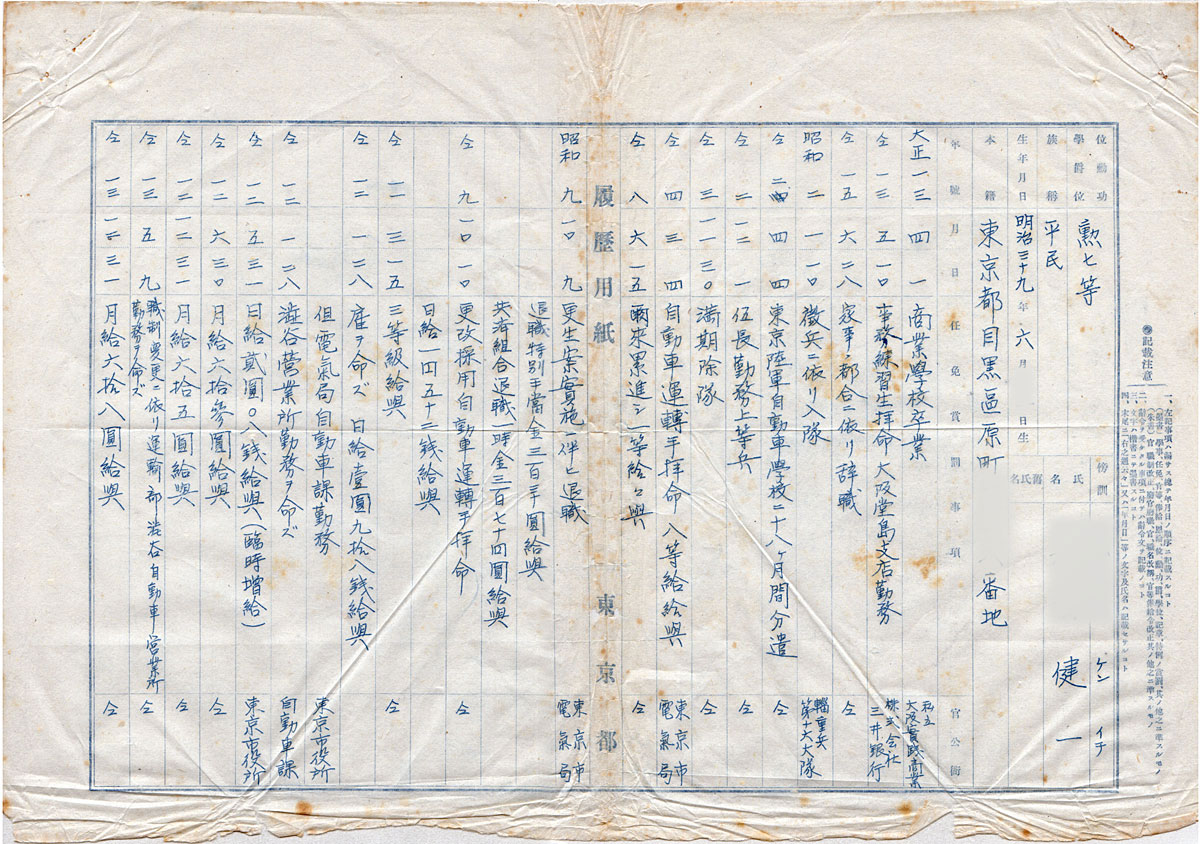 記載注意
一、左記事項ハ漏サス總テ年月日ノ順序ニ記載スルコト
位勳功
學爵位
勲七等
族稱
平民
生年月日
明治三十九年六月 日生
本籍
東京都目黒區原町 番地
氏名
舊氏名
ケンイチ
健一
年號月日任免賞罰事項官公衙
大正一三 四 一 商業學校卒業 私立大阪實踐商業
仝 一三 五 一〇 事務練習生拝命 大阪堂島支店勤務 株式会社三井銀行
仝 一五 六 二八 家事ノ都合ニ依リ辞職 仝
昭和 二 一 一〇 徴兵ニ依リ入隊 輜重兵第十六大隊
仝 二 四 四 東京陸軍自動車學校ニ十八ヶ月間分遣 仝
仝 二 一二 一 伍長勤務上等兵 仝
仝 三 一一 三〇 満期除隊 仝
仝 四 三 四 自動車運轉手拝命 八等給給與 東京市電氣局
仝 八 六 一五 爾来累進シ一等給給與 仝
履歷用紙 東京都
昭和 九 一〇 九 更生案實施ニ伴ヒ退職 東京市電氣局
退職特別手當金三百二十圓給與
共済組合退職一時金三百七十四圓給與
仝 九 一〇 一〇 更改採用自動車運轉手拝命 仝
日給一四五十二銭給與
仝 一一 三 一五 三等級給與
仝 一二 一 二八 雇ヲ命ズ 日給壹圓九拾八銭給與
但電氣局自動車課勤務 東京市役所
仝 一二 一 二八 澁谷営業所勤務ヲ命ズ 自動車課
仝 一二 五 三一 日給貳圓〇八銭給與(臨時増給) 東京市役所
仝 一二 六 三〇 月給六拾参圓給與 仝
仝 一二 一二 三一 月給六拾五圓給與 仝
仝 一三 五 九 職制変更ニ依リ運輸部澁谷自動車営業所勤務ヲ命ズ 仝
仝 一三 一二 三一 月給六拾八圓給與 仝